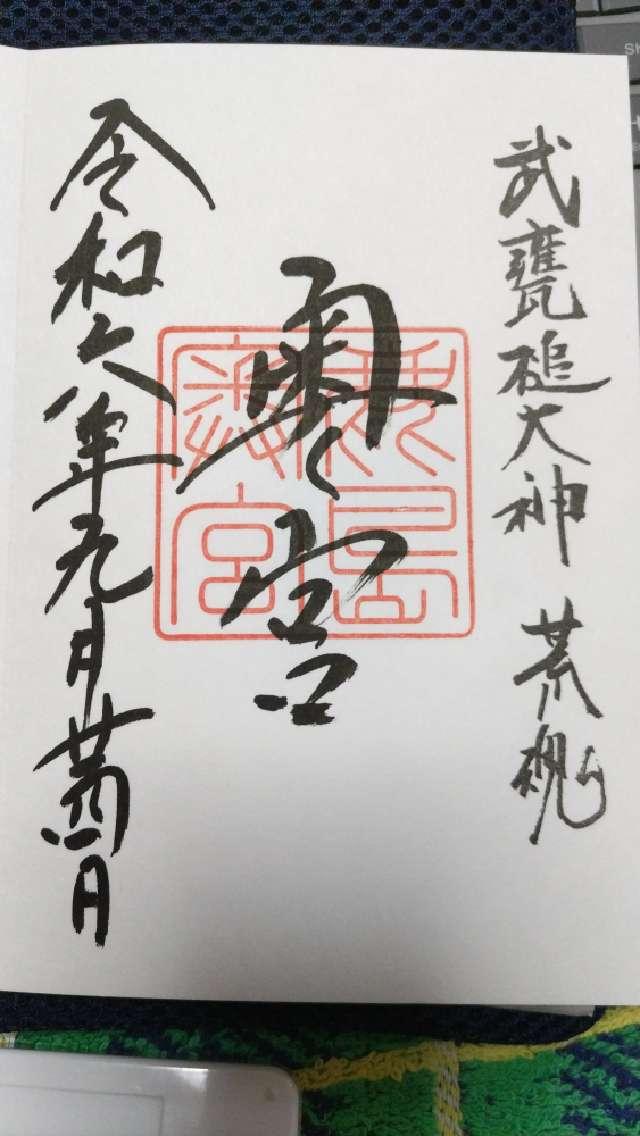 武甕槌大神 荒魂
奥宮
鹿島奥宮
令和六年九月廿四日